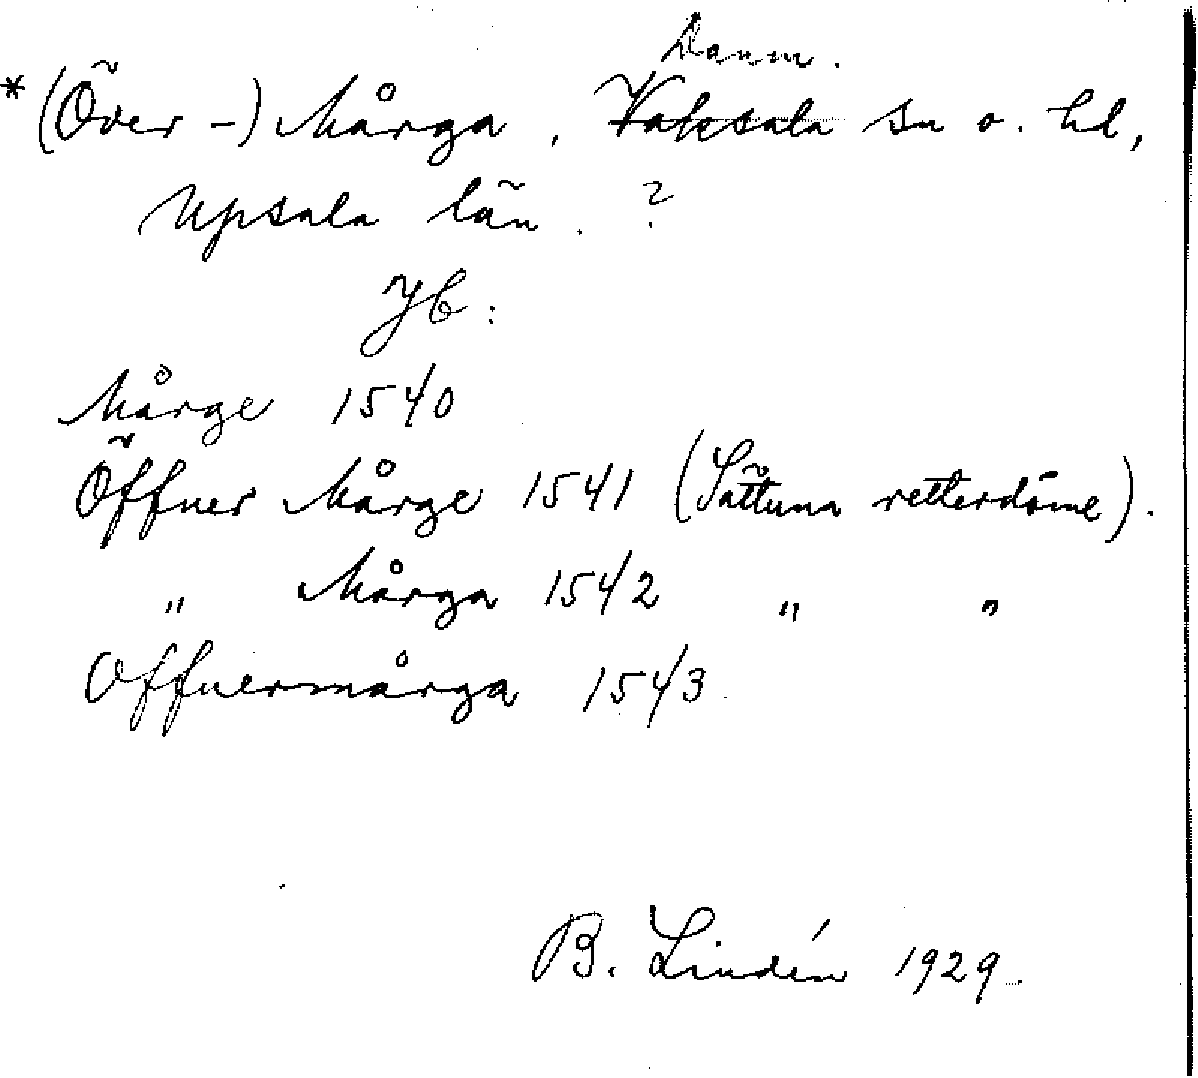 Danm.
*(Över-) Mårga, Vaksala sn o. hd,
Upsala län. ?
Jb:
Mårge 1540
Öffner Mårge 1541 (Sättuna retterdöme).
" Mårga 1542 " "
Offnermårga 1543
B. Lindén 1929.